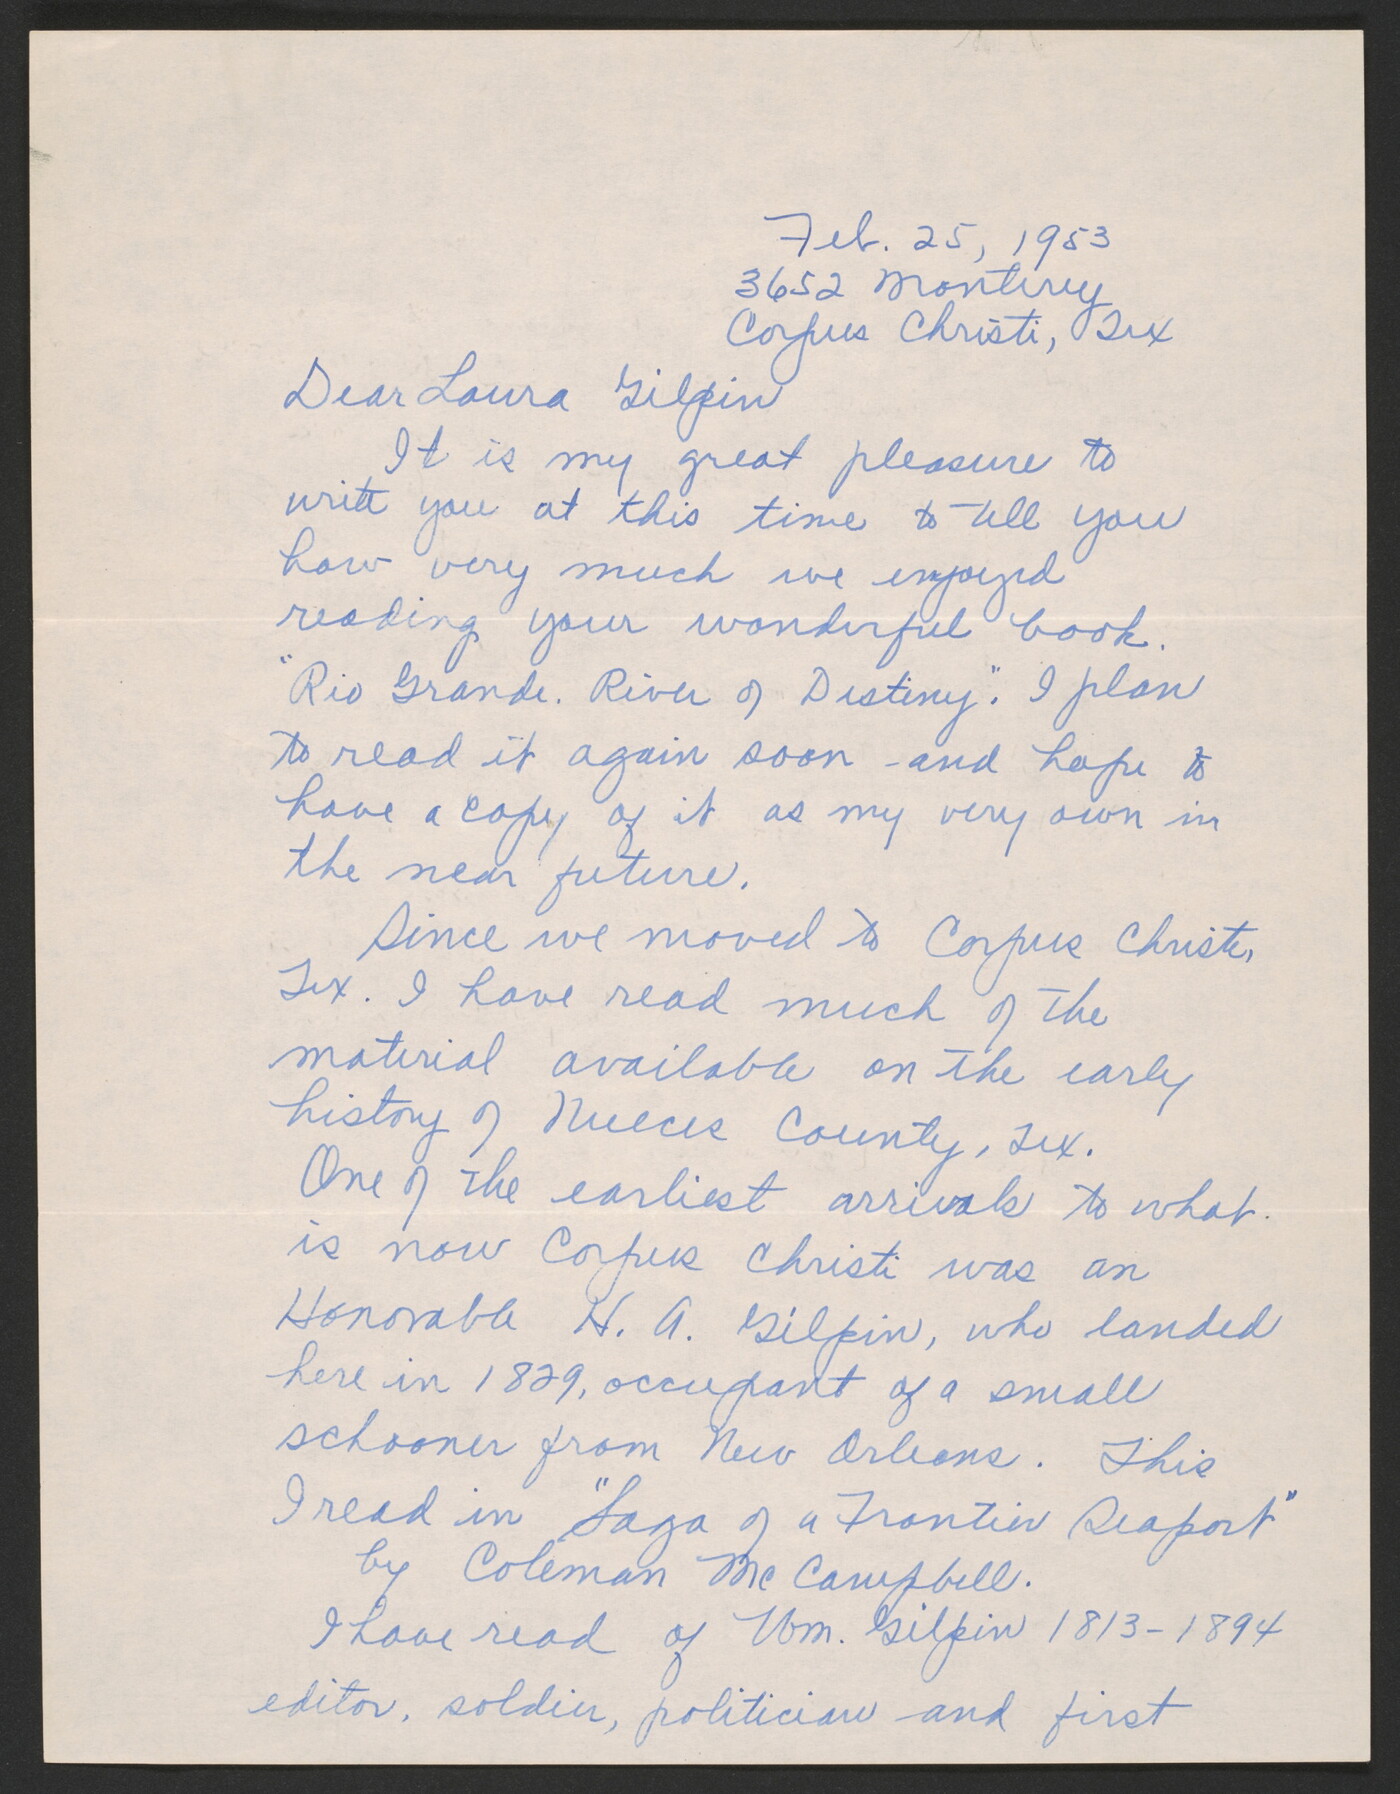 Feb. 25, 1953
3652 Monterey
Corpus Christi, Tex
Dear Laura Gilpin
It is my great pleasure to
write you at this time to tell you
how very much we enjoyed
reading your wonderful book.
"Rio Grande. River of Destiny". I plan
to read it again soon - and hope to
have a copy of it as my very own in
the near future.
Since we moved to Corpus Christi,
Tex. I have read much of the
material available on the early
history of Nueces County, Tex.
One of the earliest arrivals to what
is now Corpus Christi was an
Honorable H. A. Gilpin, who landed
here in 1829, occupant of a small
schooner from New Orleans. This
I read in "Saga of a Frontier Seaport"
by Coleman McCampbell.
I have read of Wm. Gilpin 1813-1894
editor, soldier, politician and first